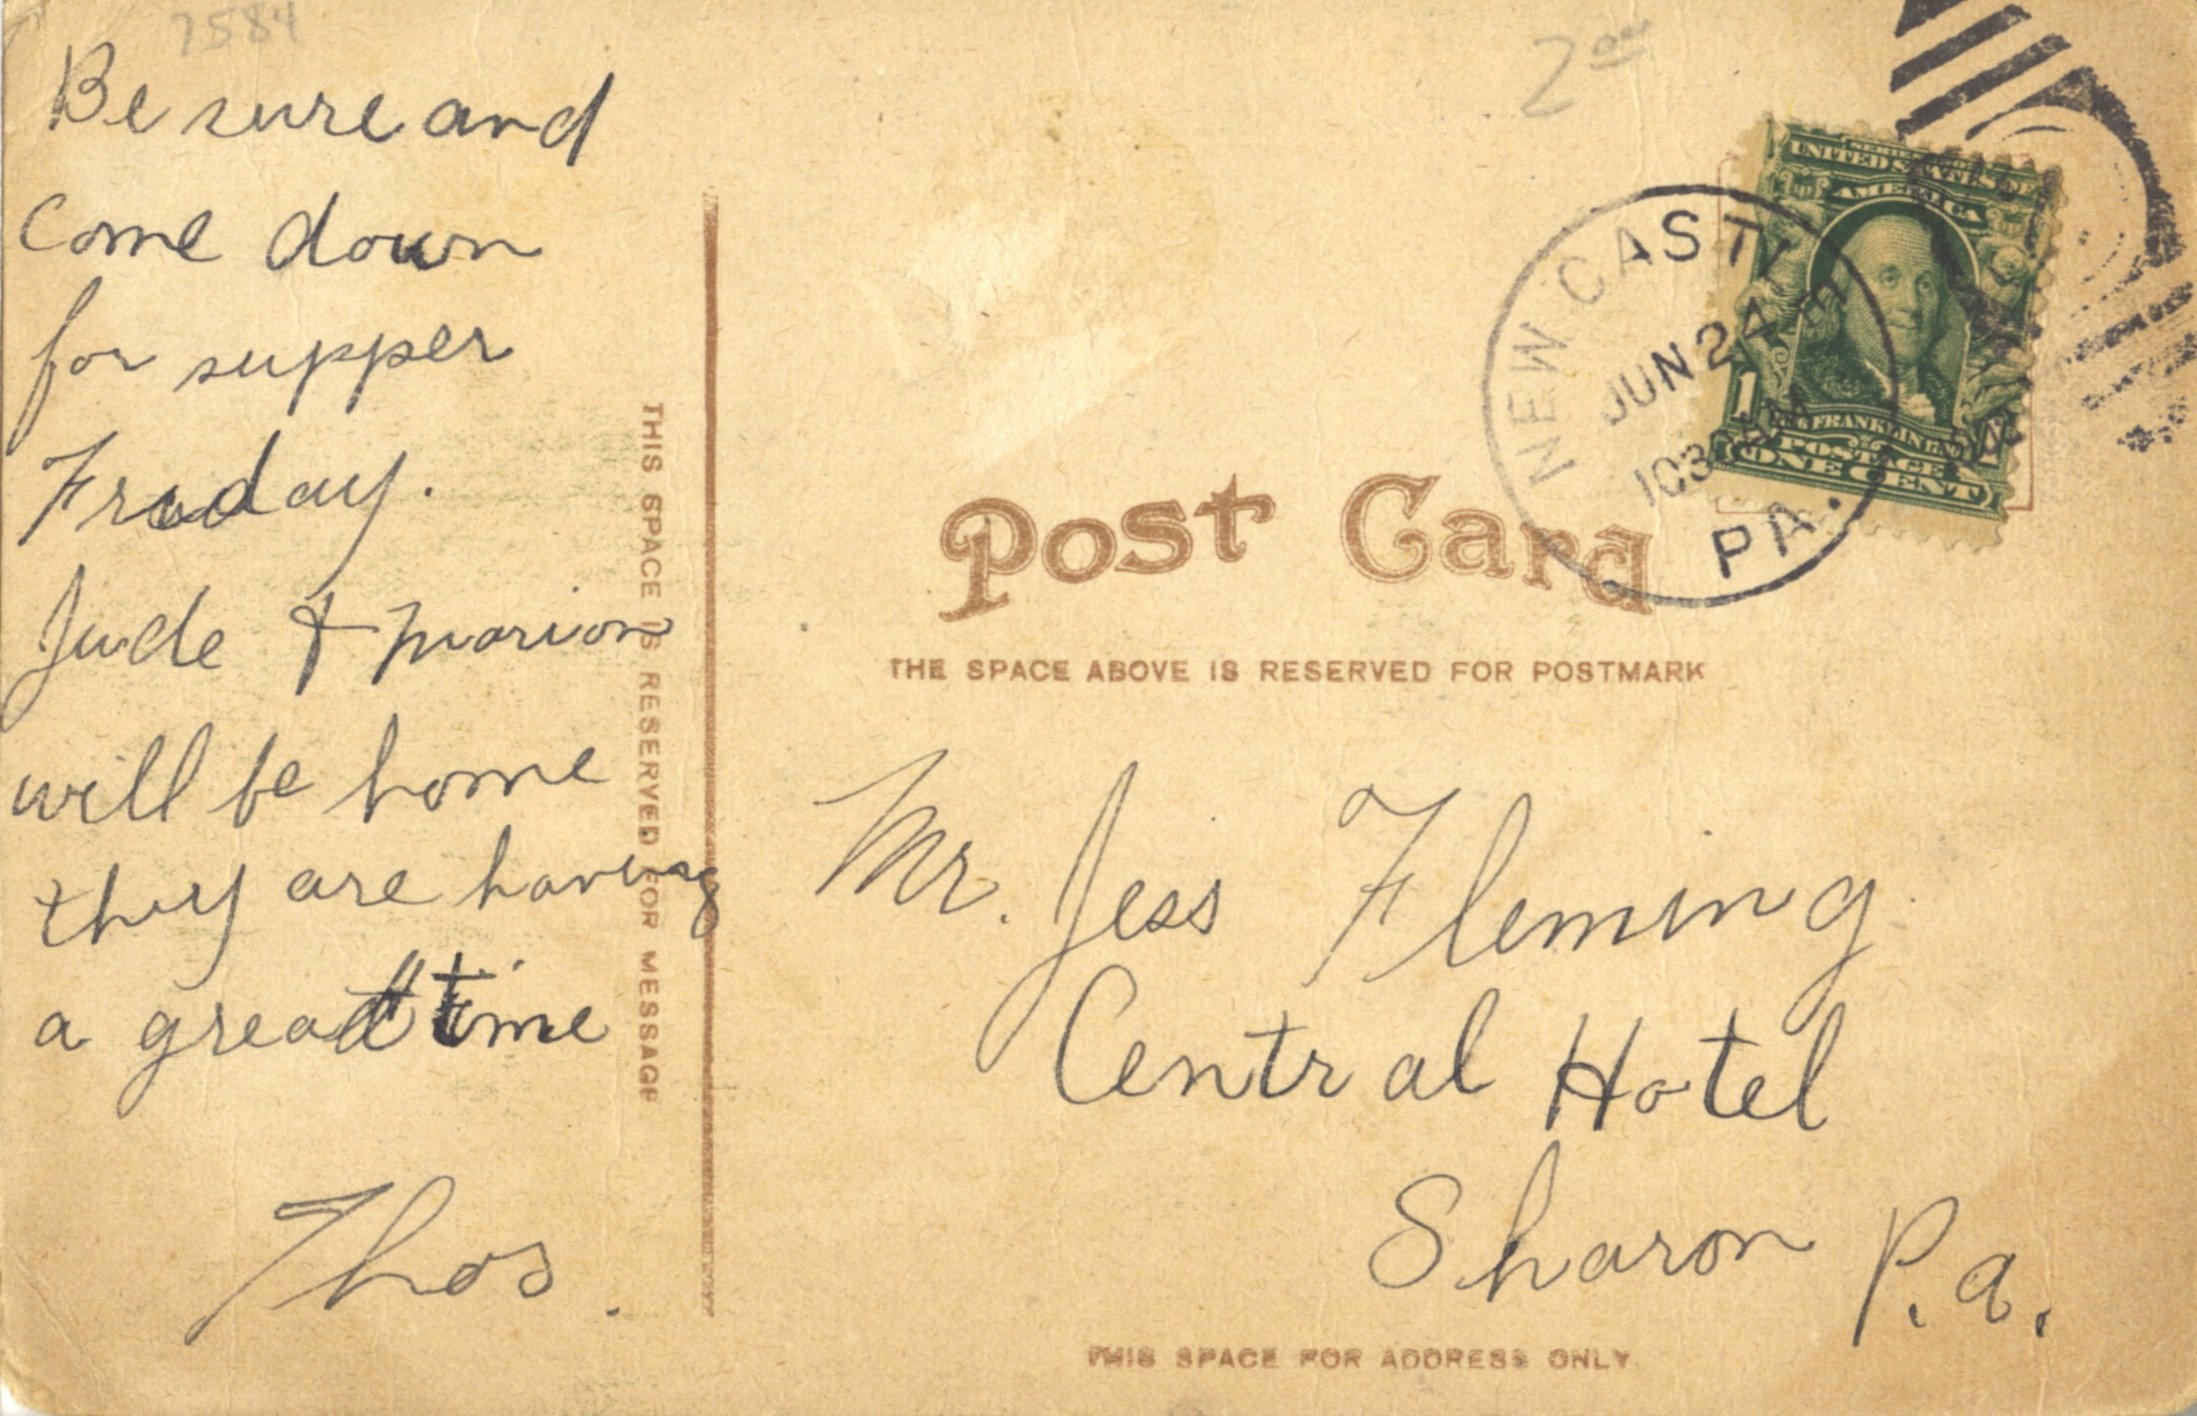 7584
Be sure and
come down
for supper
Friday.
Jude & Marion
will be home
they are having
a great time
Thos.
THIS SPACE IS RESERVED FOR MESSAGE
2 00
NEW CASTLE
JUN 24
1030 AM
PA.
SERIES 1902
UNITED STATES OF
AMERICA
1
FRANKLIN
POSTAGE
ONE CENT
Post Card
THE SPACE ABOVE IS RESERVED FOR POSTMARK
Mr. Jess Fleming
Central Hotel
Sharon P.a.
THIS SPACE FOR ADDRESS ONLY